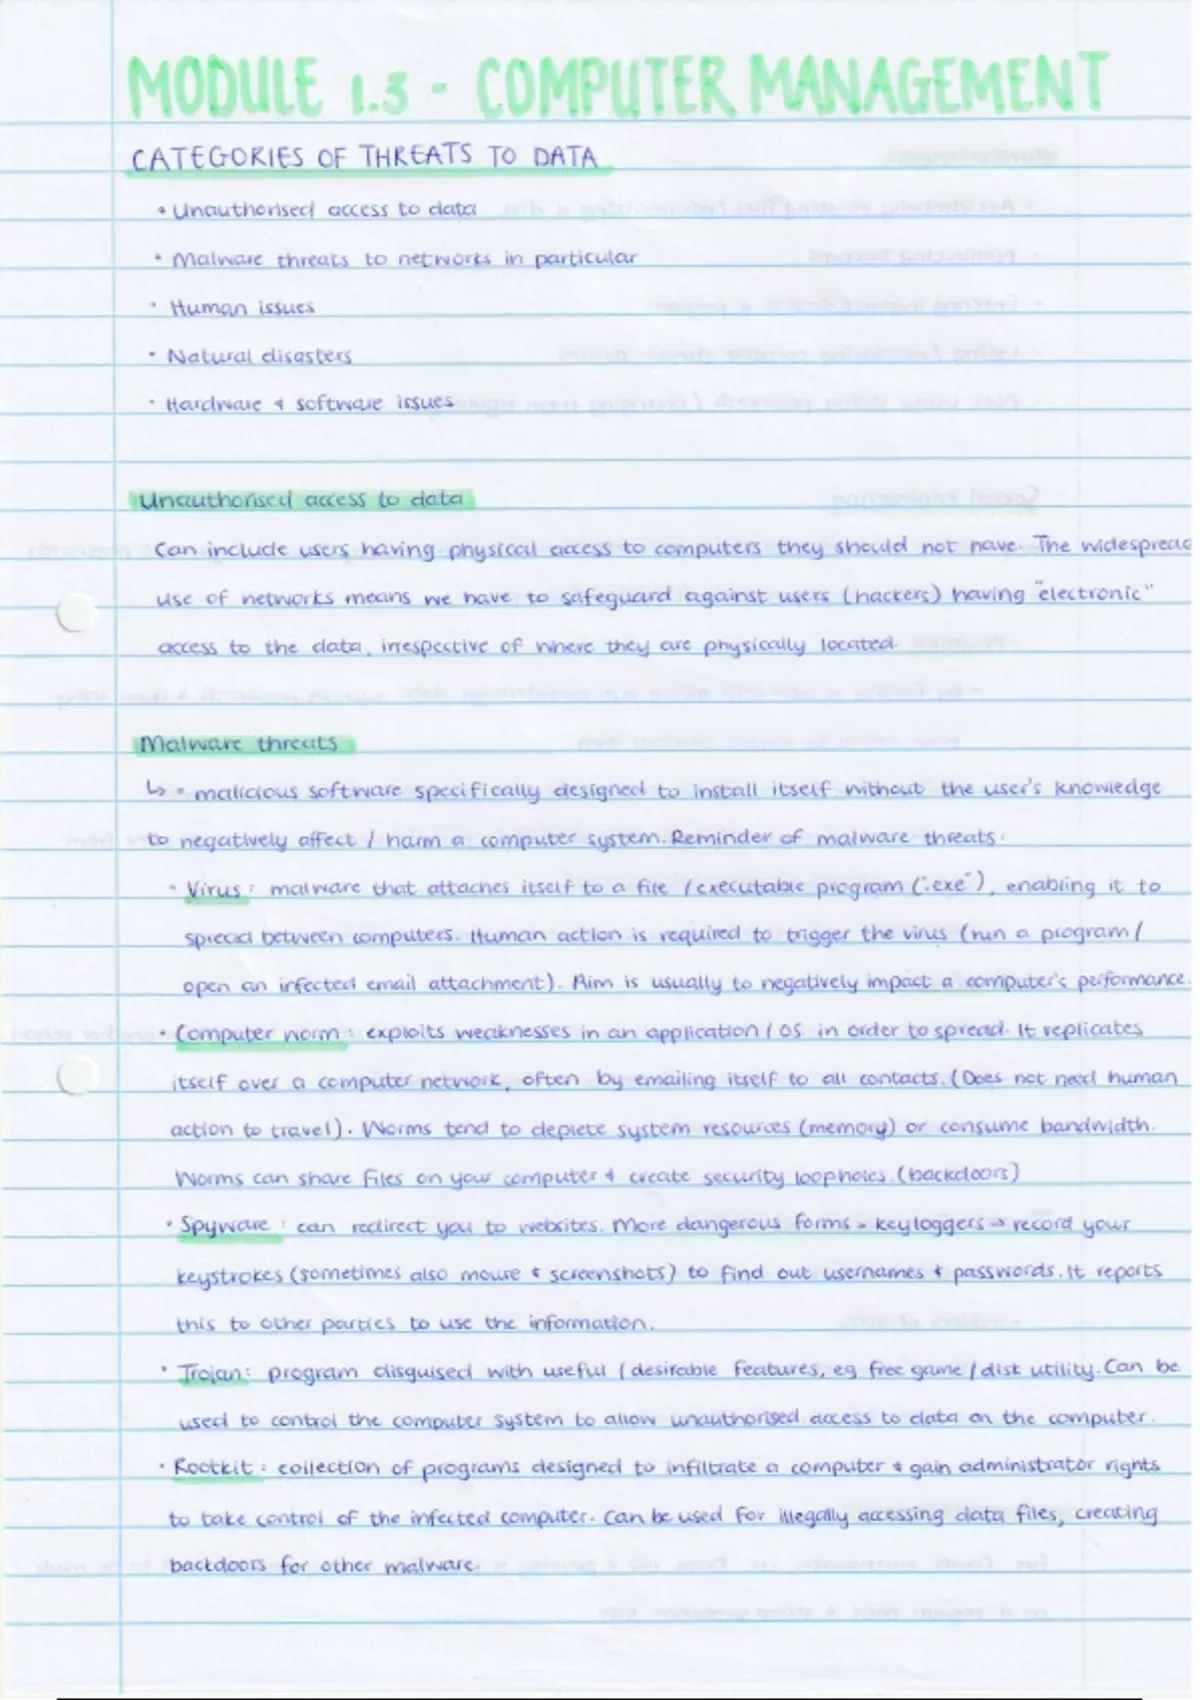 MODULE 1.3 - COMPUTER MANAGEMENT
CATEGORIES OF THREATS TO DATA
• Unauthorised access to data
• Malware threats to networks in particular
• Human issues
• Natural disasters
• Hardware & software issues
Unauthorised access to data
Can include users having physical access to computers they should not have. The widespread
use of networks means we have to safeguard against users (hackers) having "electronic"
access to the data, irrespective of where they are physically located.
Malware threats
↳ = malicious software specifically designed to install itself without the user's knowledge
to negatively affect / harm a computer system. Reminder of malware threats:
• Virus: malware that attaches itself to a file / executable program (".exe"), enabling it to
spread between computers. Human action is required to trigger the virus (run a program /
open an infected email attachment). Aim is usually to negatively impact a computer's performance.
• Computer worm: exploits weaknesses in an application / OS in order to spread. It replicates
itself over a computer network, often by emailing itself to all contacts. (Does not need human
action to travel). Worms tend to deplete system resources (memory) or consume bandwidth.
Worms can share files on your computer & create security loopholes. (backdoors)
• Spyware: can redirect you to websites. More dangerous forms = keyloggers → record your
keystrokes (sometimes also mouse & screenshots) to find out usernames & passwords. It reports
this to other parties to use the information.
• Trojan: program disguised with useful / desirable features, eg free game / disk utility. Can be
used to control the computer system to allow unauthorised access to data on the computer.
• Rootkit: collection of programs designed to infiltrate a computer & gain administrator rights
to take control of the infected computer. Can be used for illegally accessing data files, creating
backdoors for other malware.